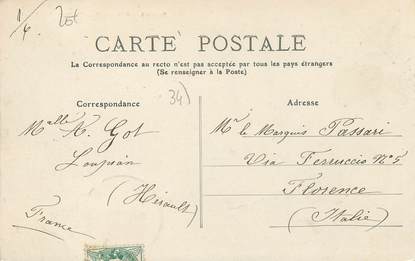 1/4 20t
CARTE POSTALE
La Correspondance au recto n'est pas acceptée par tous les pays étrangers
(Se renseigner à la Poste)
Correspondance
34)
Adresse
Melle K. Got
Loupian
(Hérault)
France
Mr le Marquis Passari
Via Ferruccio No 5
Florence
(Italie)